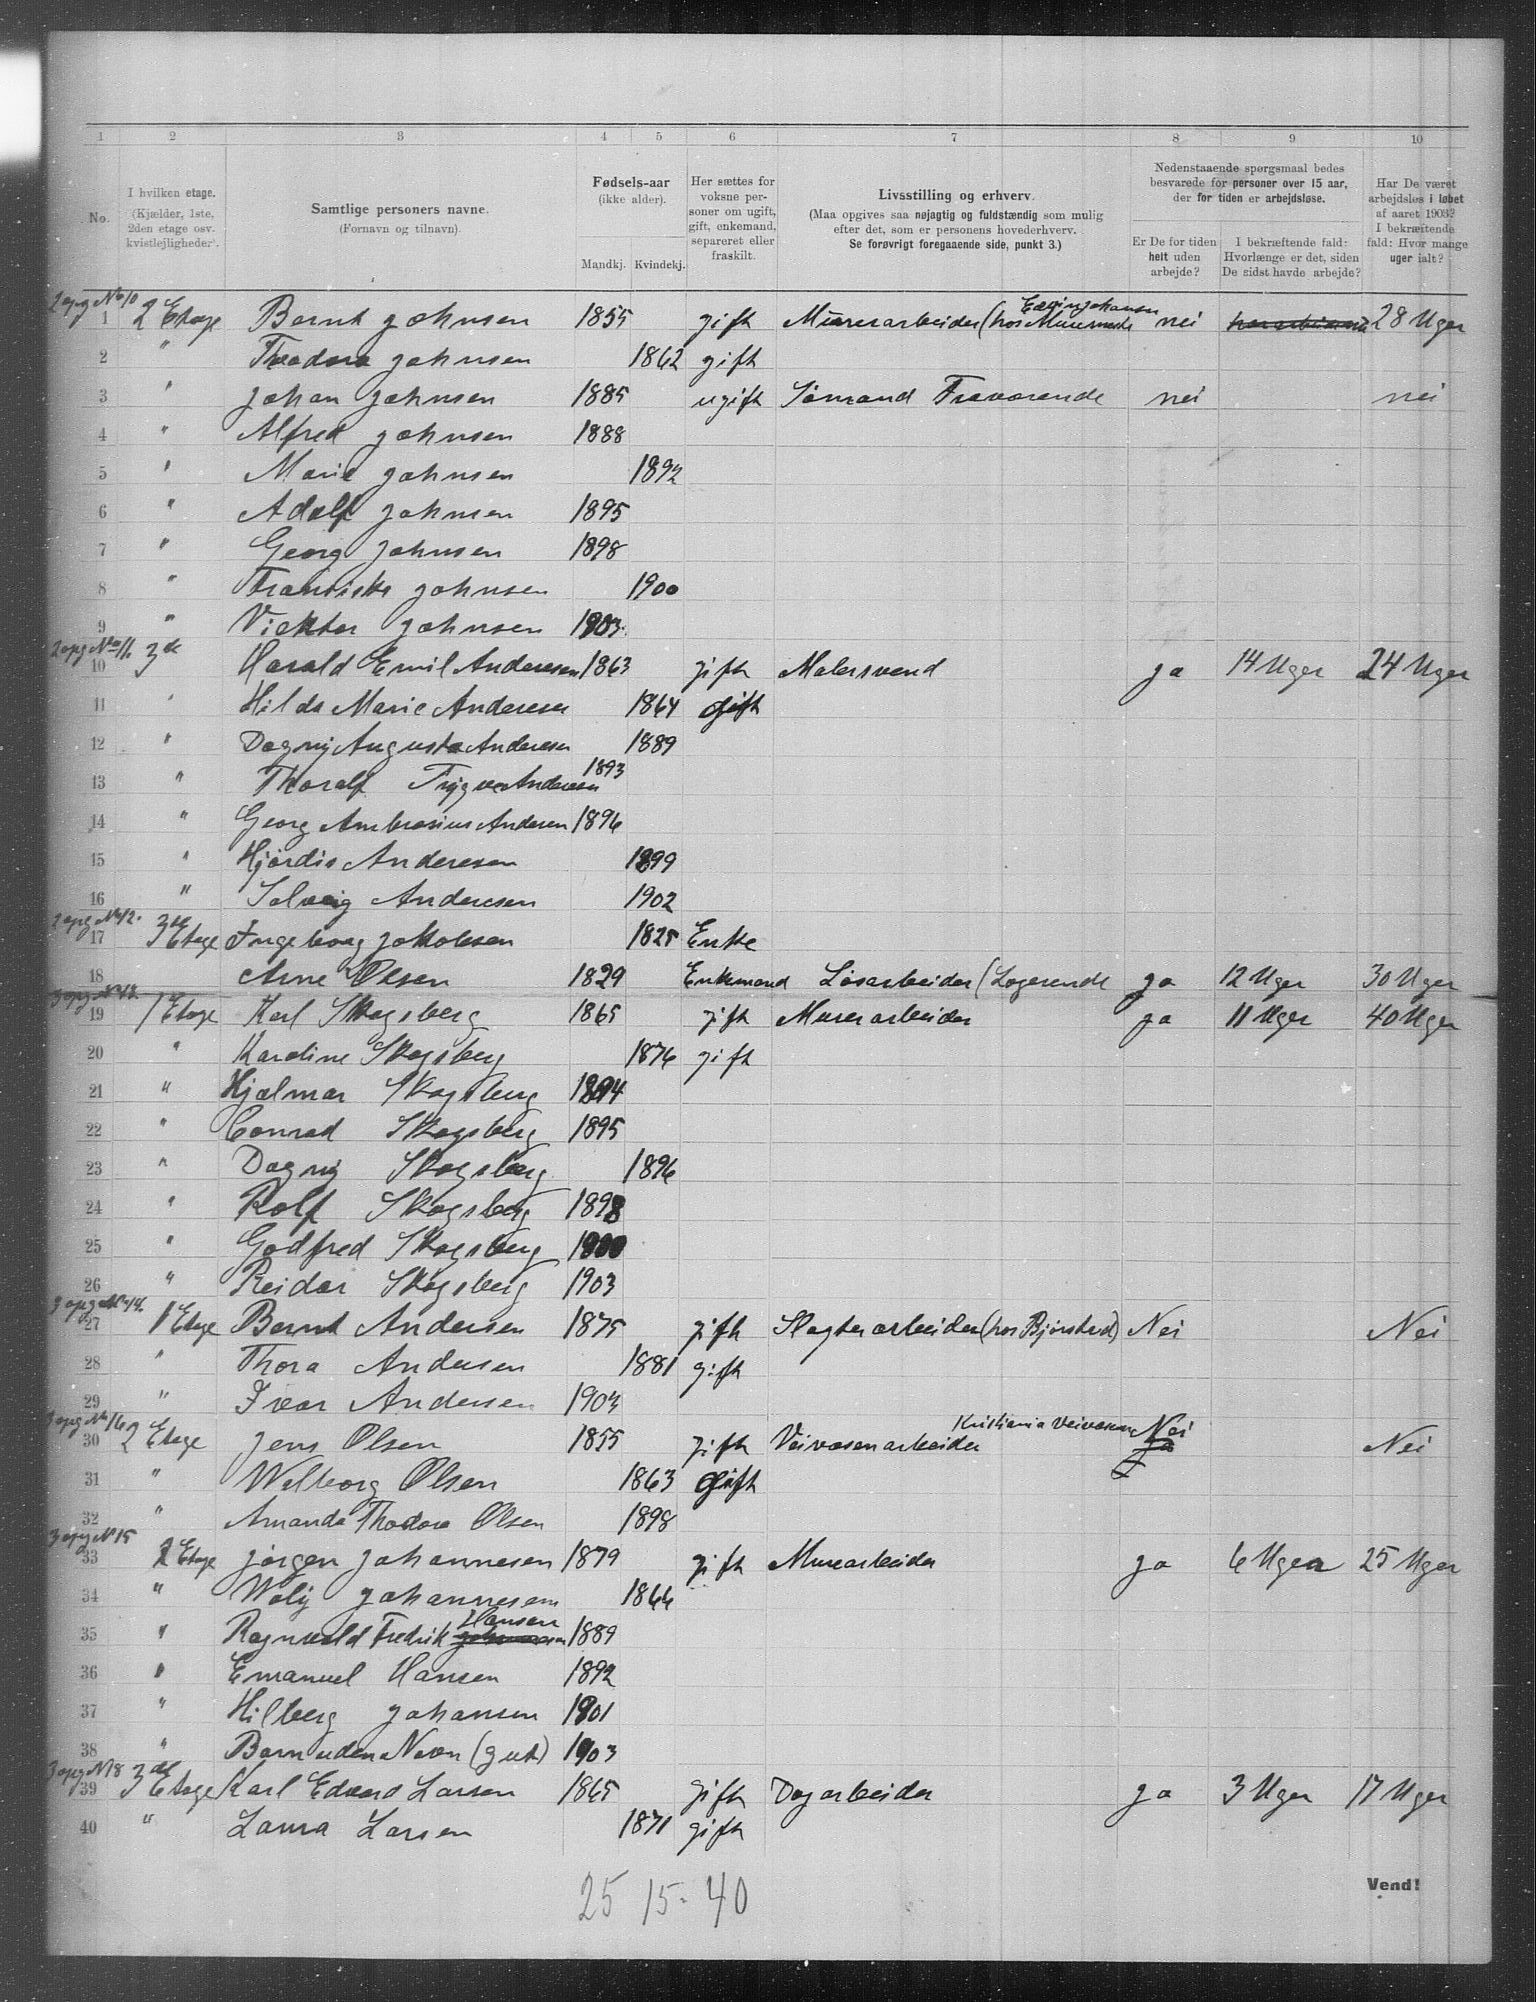 1 2 3 4 5 6 7 8 9 10
No.
I hvilken etage.
(Kjælder, 1ste,
2den etage osv.
kvistlejligheder).
Samtlige personers navne.
(Fornavn og tilnavn).
Fødsels-aar
(ikke alder).
Mandkj. Kvindekj.
Her sættes for
voksne per-
soner om ugift,
gift, enkemand,
separeret eller
fraskilt.
Livsstilling og erhverv.
(Maa opgives saa nøjagtig og fuldstændig som mulig
efter det, som er personens hovederhverv.
Se forøvrigt foregaaende side, punkt 3.)
Nedenstaaende spørgsmaal bedes
besvarede for personer over 15 aar,
der for tiden er arbejdsløse.
Er De for tiden
helt uden
arbejde?
I bekræftende fald:
Hvorlænge er det, siden
De sidst havde arbejde?
Har De været
arbejdsløs i løbet
af aaret 1903?
I bekræftende
fald: Hvor mange
uger ialt?
2 opg No 10
1 2 Etage Bernt Johnsen 1855 gift Murerarbeider (hos Murmest. Edvin Johansen nei 28 Uger
2 " Theodora Johnsen 1862 gift
3 " Johan Johnsen 1885 ugift Sømand Fraværende nei nei
4 " Alfred Johnsen 1888
5 " Marie Johnsen 1892
6 " Adolf Johnsen 1895
7 " Georg Johnsen 1898
8 " Franciska Johnsen 1900
9 " Vicktor Johnsen 1903
2 opg No 11.
10 3de Harald Emil Andersen 1863 gift Malersvend ja 14 Uger 24 Uger
11 " Hilda Marie Andersen 1864 gift
12 " Dagny Augusta Andersen 1889
13 " Thoralf Trygve Andersen 1893
14 " Georg Ambrosius Andersen 1896
15 " Hjørdis Andersen 1899
16 " Solveig Andersen 1902
2 opg No 12.
17 3de Etage Ingeborg Jakobsen 1825 Enke
18 Arne Olsen 1829 Enkemand Løsarbeider (Logerende ja 12 Uger 30 Uger
3 opg No 13
19 1 Etage Karl Skogsberg 1865 gift Murerarbeider ja 11 Uger 40 Uger
20 " Karoline Skogsberg 1876 gift
21 " Hjalmar Skogsberg 1894
22 " Conrad Skogsberg 1895
23 " Dagny Skogsberg 1896
24 " Rolf Skogsberg 1898
25 " Godfred Skogsberg 1900
26 " Reidar Skogsberg 1903
3 opg No 14.
27 1 Etage Bernt Andersen 1875 gift Slagterarbeider (hos Bjørstad) Nei Nei
28 " Thora Andersen 1881 gift
29 " Ivar Andersen 1903
3 opg No 16
30 2 Etage Jens Olsen 1855 gift Veivæsenarbeider Kristiania Veivæsen Nei Nei
31 " Walborg Olsen 1863 gift
32 " Amanda Thodora Olsen 1898
3 opg No 15
33 2 Etage Jørgen Johannesen 1879 gift Murearbeider ja 6 Uger 25 Uger
34 " Wally Johannesen 1866
35 " Ragnvald Fredrik Hansen 1889
36 " Emanuel Hansen 1892
37 " Hilberg Johansen 1901
38 " Barn uden Navn (gut) 1903
3 opg No 18
39 3de Etage Karl Edvard Larsen 1865 gift Dagarbeider ja 3 Uger 17 Uger
40 " Laura Larsen 1871 gift
25 15 - 40
Vend!